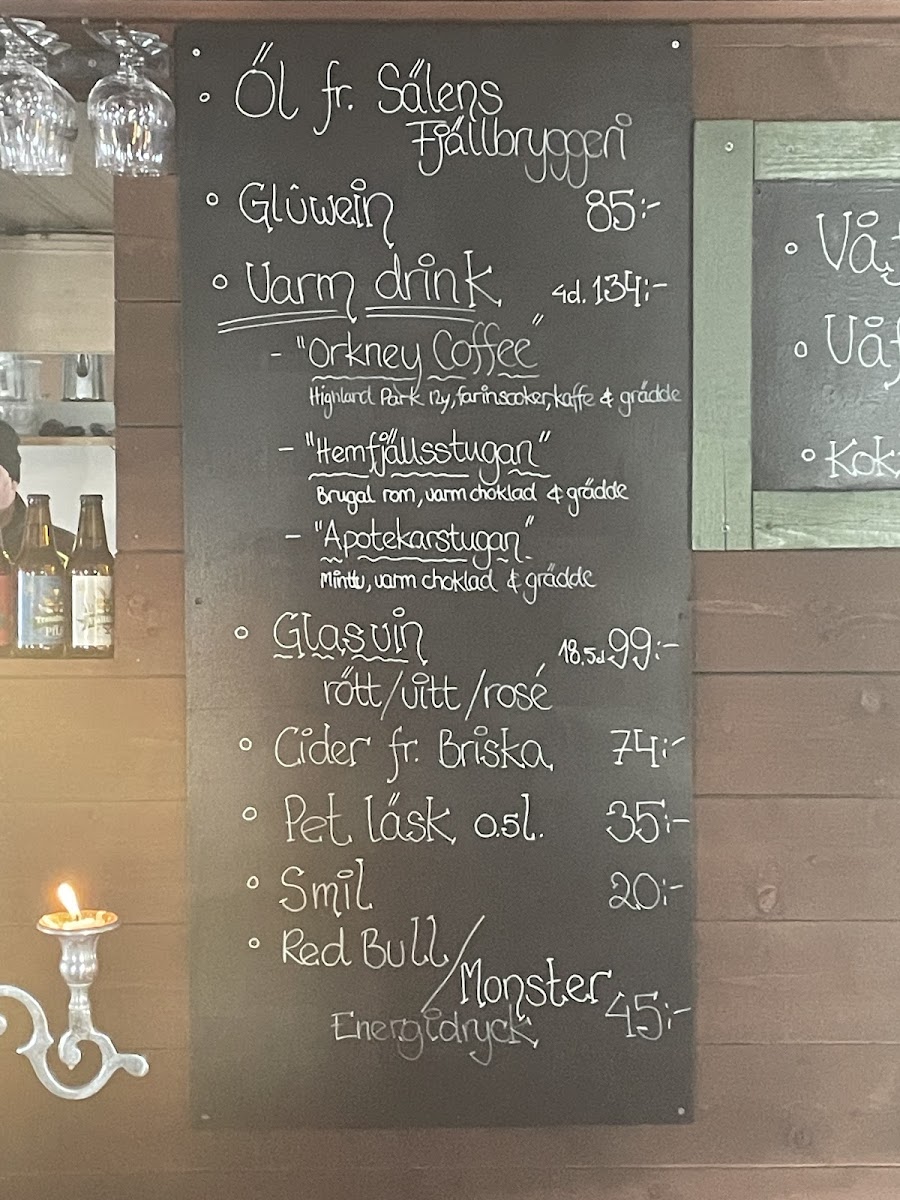 ° Öl fr. Sälens
Fjällbryggeri
° Glûwein 85:-
° Varm drink 4cl. 134:-
- "Orkney Coffee"
Highland Park 12y, farinsocker, kaffe & grädde
- "Hemfjällsstugan"
Brugal rom, varm choklad & grädde
- "Apotekarstugan"
Minttu, varm choklad & grädde
° Glasvin 18.5cl 99:-
rött/vitt/rosé
° Cider fr. Briska 74:-
° Pet läsk 0.5l. 35:-
° Smil 20:-
° Red Bull/
Monster
Energidryck 45:-